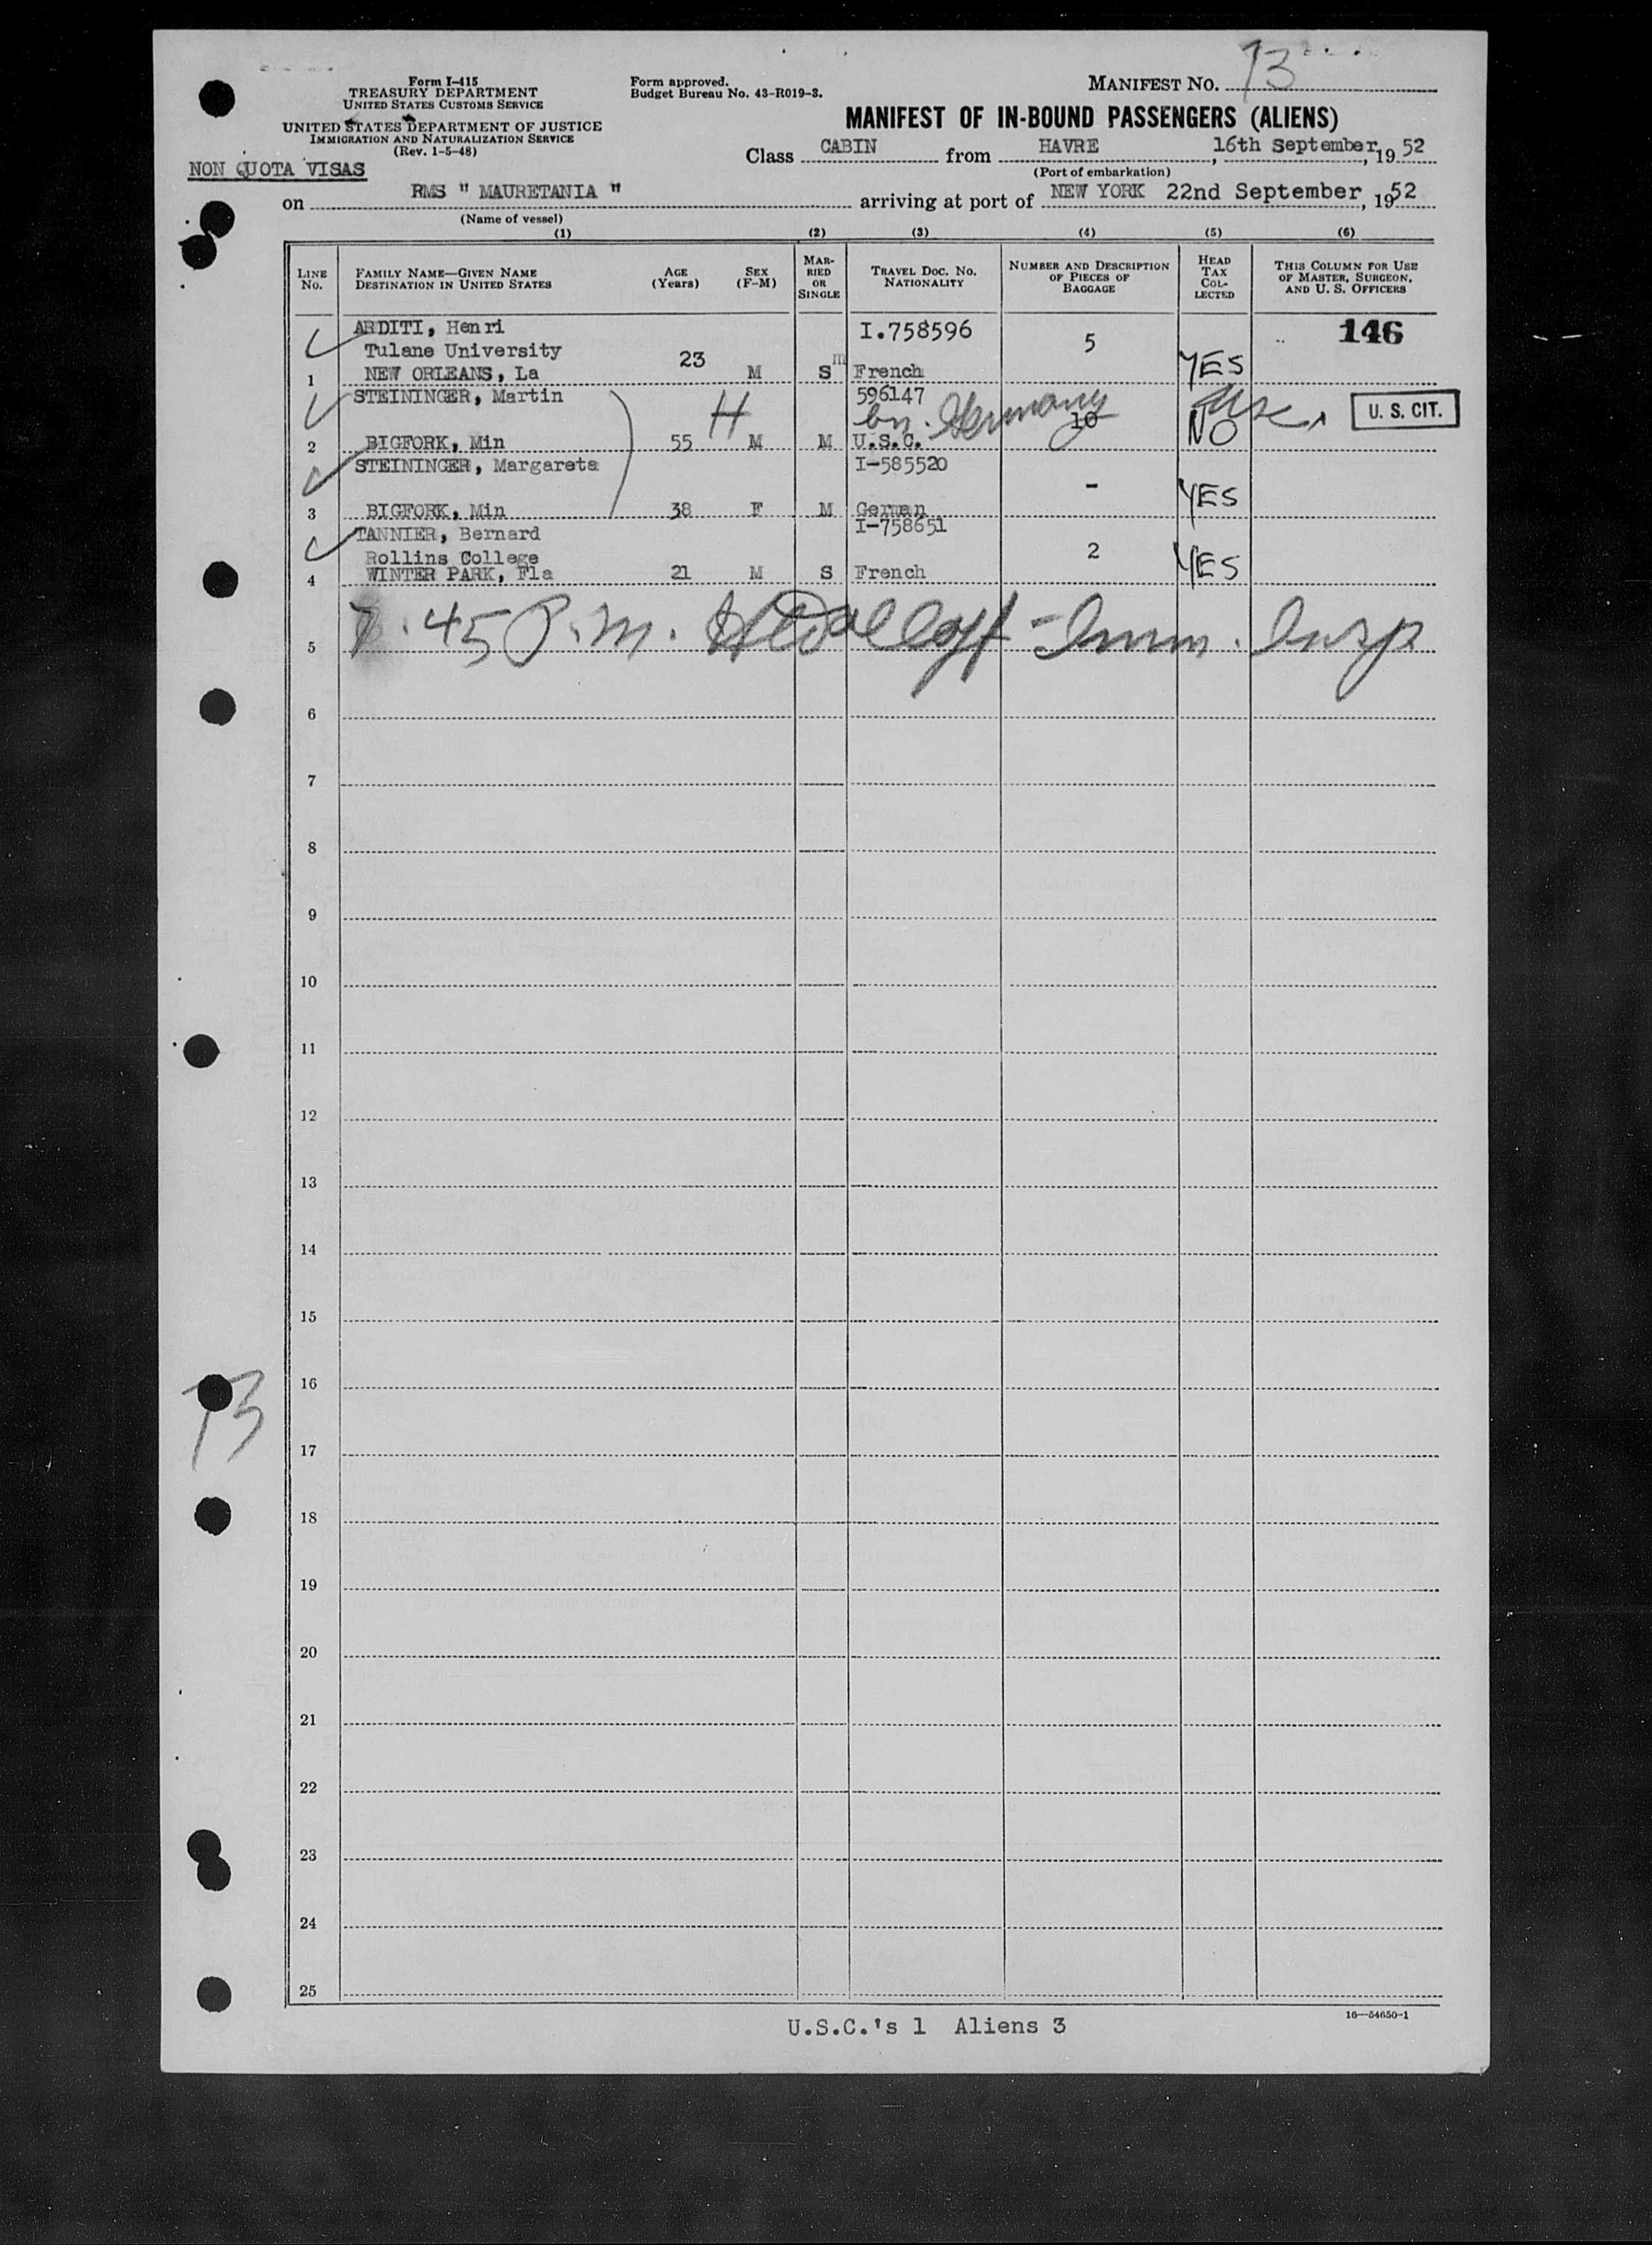 Form I-415
TREASURY DEPARTMENT
UNITED STATES CUSTOMS SERVICE
UNITED STATES DEPARTMENT OF JUSTICE
IMMIGRATION AND NATURALIZATION SERVICE
(Rev. 1-5-48)
Form approved.
Budget Bureau No. 43-R019-3.
MANIFEST NO. 73
MANIFEST OF IN-BOUND PASSENGERS (ALIENS)
NON QUOTA VISAS
Class CABIN from HAVRE, 16th September, 1952
(Port of embarkation)
on RMS " MAURETANIA " arriving at port of NEW YORK 22nd September, 1952
(Name of vessel)
(1) (2) (3) (4) (5) (6)
LINE No.
FAMILY NAME—GIVEN NAME
DESTINATION IN UNITED STATES
AGE (Years)
SEX (F-M)
MARRIED OR SINGLE
TRAVEL DOC. NO. NATIONALITY
NUMBER AND DESCRIPTION OF PIECES OF BAGGAGE
HEAD TAX COLLECTED
THIS COLUMN FOR USE OF MASTER, SURGEON, AND U. S. OFFICERS
ARDITI, Henri I.758596 146
Tulane University 23 5
1 NEW ORLEANS, La M S m French YES
STEININGER, Martin 596147
H bn. Germany 10 U. S. CIT.
2 BIGFORK, Min 55 M M U.S.C. NO
STEININGER, Margareta I-585520
-
3 BIGFORK, Min 38 F M German YES
TANNIER, Bernard I-758651
Rollins College 2
4 WINTER PARK, Fla 21 M S French YES
5 7.45 P.m. - Imm. Insp
6
7
8
9
10
11
12
13
14
15
16
73
17
18
19
20
21
22
23
24
25
16—54650-1
U.S.C.'s 1 Aliens 3